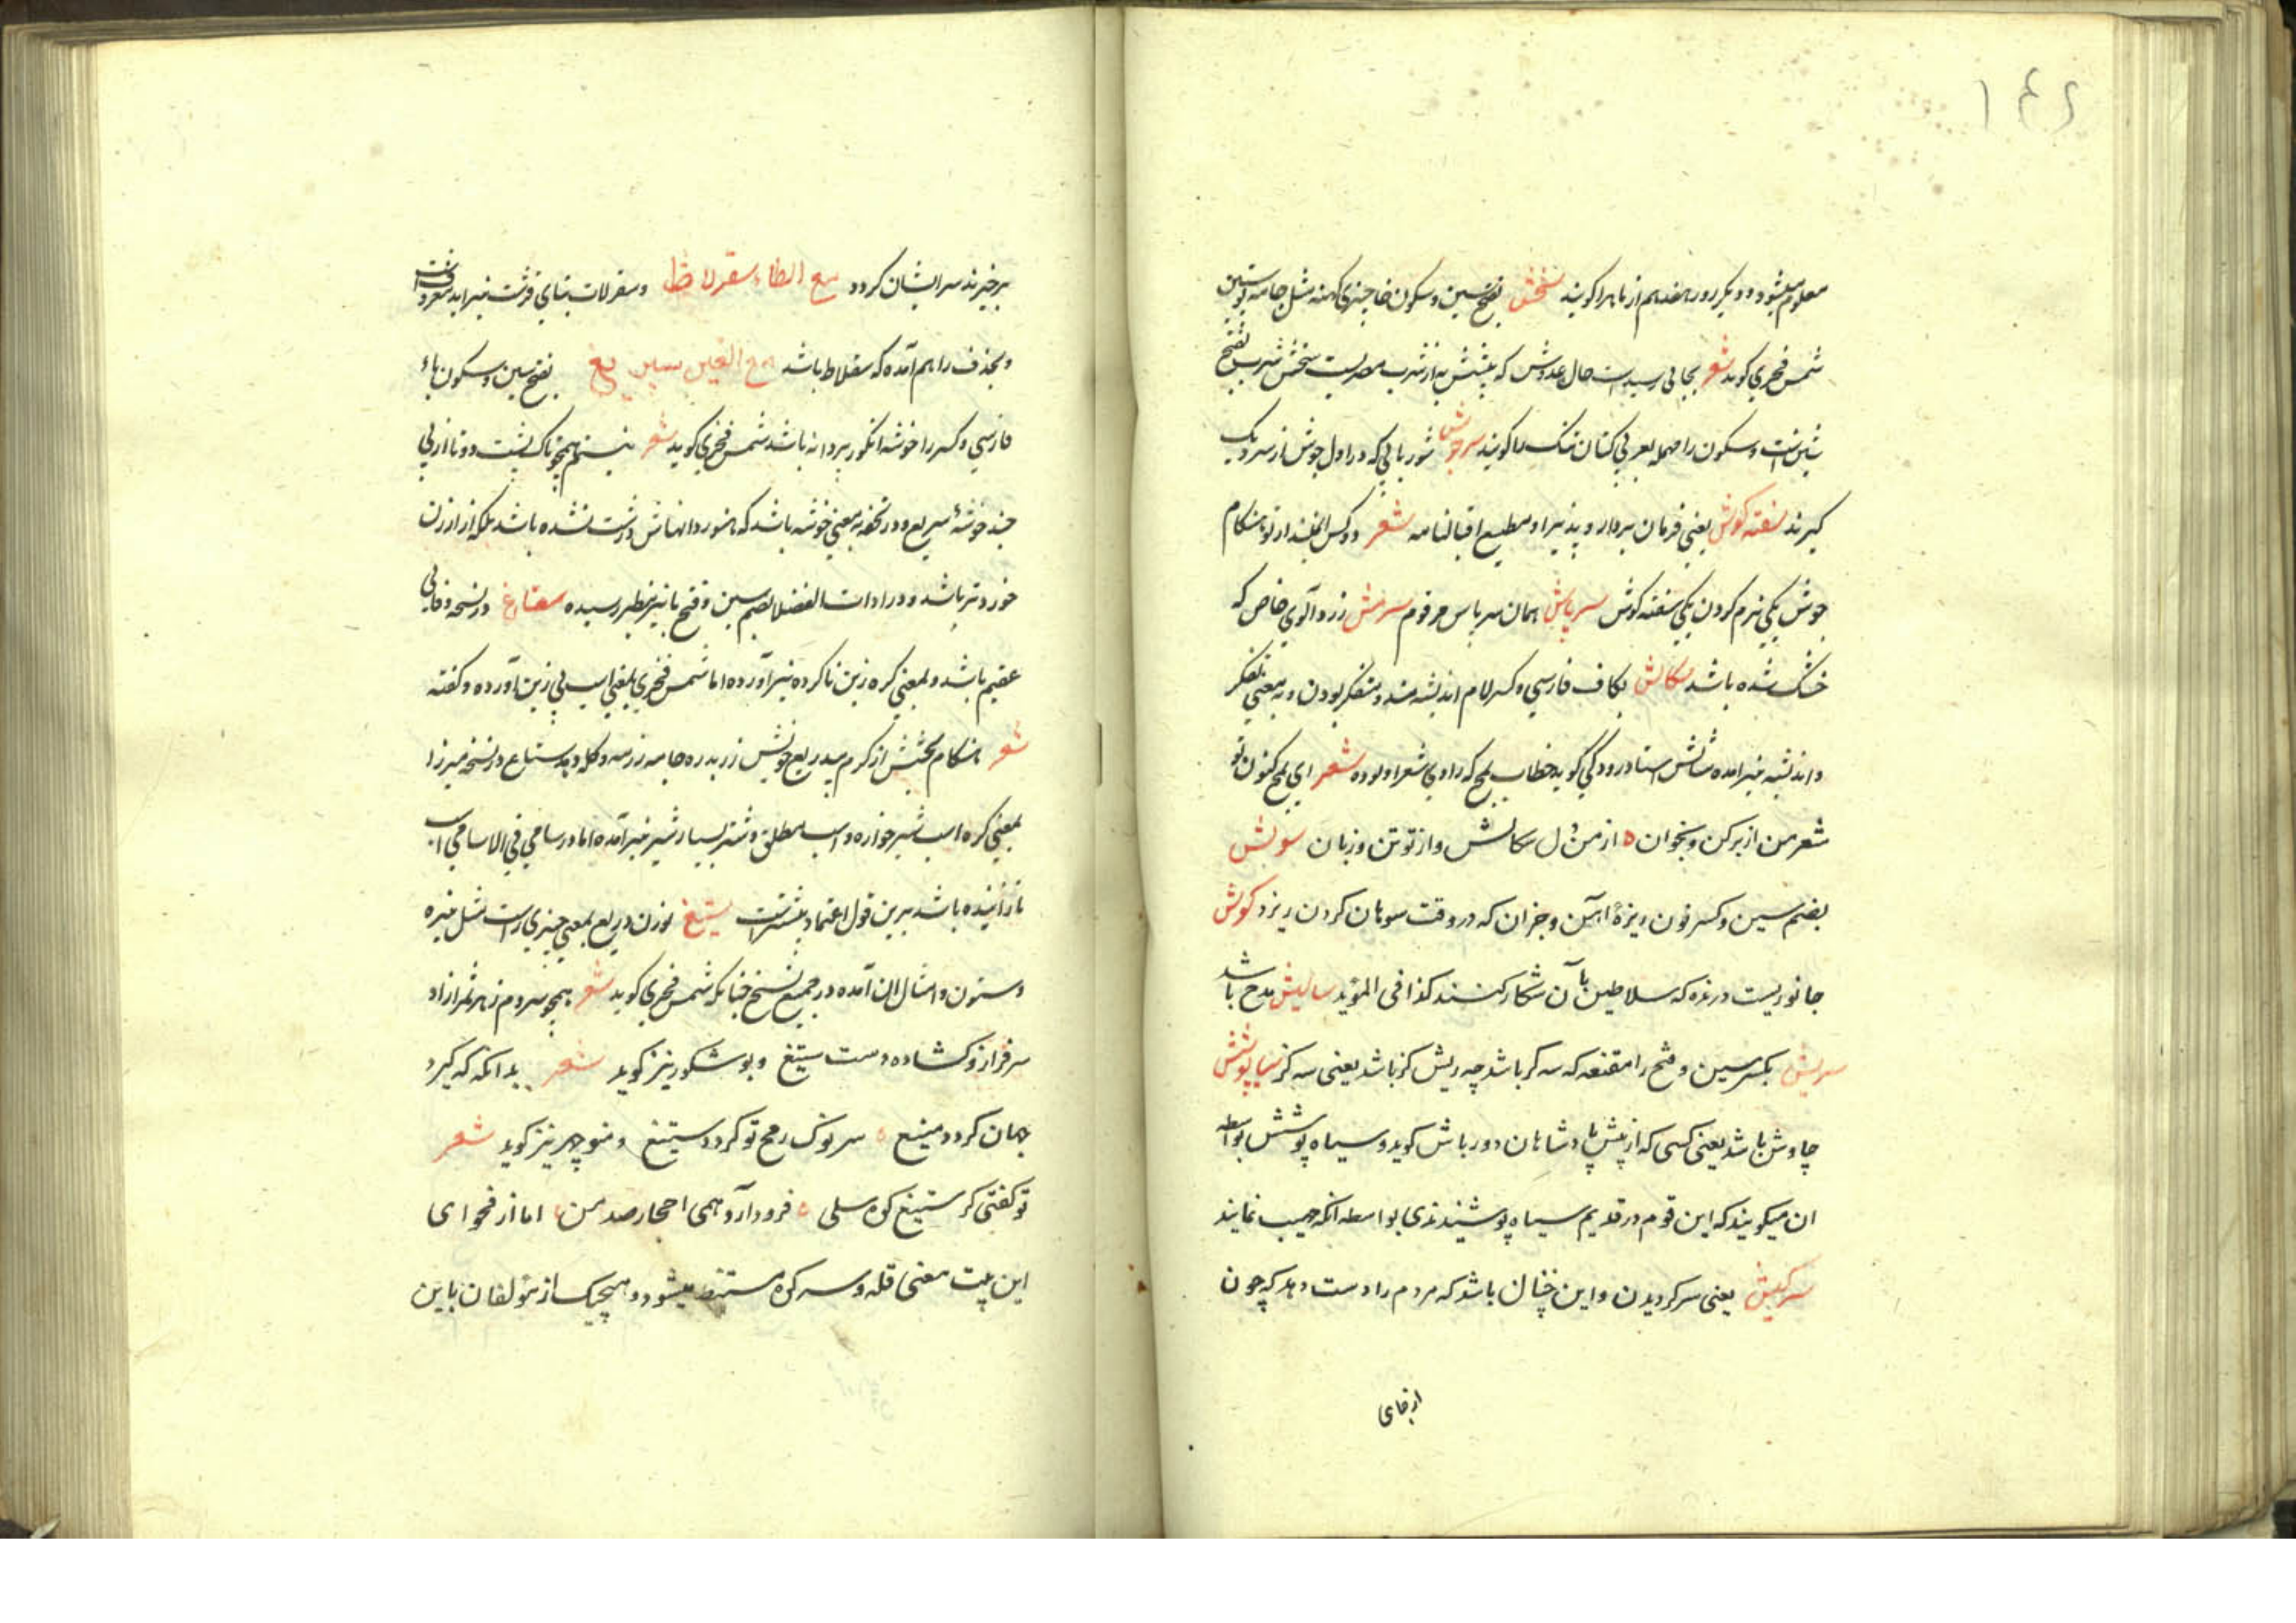 ۱۴۶
معلوم میشود و دیکر روز هفدهم از ماهرا کویند سخش بفتح سین و سکون خا چیزی کهنه مثل جامه پوستین
شمس فخری کوید شعر بجائی رسیدست حال عدوش که پیشش به از شرب مصریست سخش شرب بفتح
شین است و سکون را مهمله یعربی کتان تنک را کویند سرجوش شوربائی که در اول جوش از سر دیک
کیرند سفته کوش یعنی فرمان بردار و پذیرا و مطیع اقبالنامه شعر دو کس از تو هنکام
جوش یکی نرم کردن یکی سفته کوش سرپاش همان سرپاس مرقوم سرمش زردآلوی خاص که
خشک شده باشد سکالش بکاف فارسی و کسر لام اندیشه مند و متفکر بودن و به معنی تفکر
و اندیشه نیز امده مثالش استاد رودکی کوید خطاب بمج که راوی شعر او بوده شعر ای مج کنون تو
شعر من از بر کن و بخوان ه از من دل سکالش و از تو تن و زبان سونش
بضم سین و کسر نون ریزهٔ اهن و جز ان که در وقت سوهان کردن ریزد کوش
جانوریست درنده که سلاطین بآن شکار کنند کذا فی المؤید سالیش مدح باشد
سریش بکسر سین و فتح را مقنعه که سه کز باشد چه ریش کز باشد یعنی سه کز سیاپوش
چاوش باشد یعنی کسی که از پیش پادشاهان دور باش کوید و سیاه پوشش بواسطه
ان میکویند که این قوم در قدیم سیاه پوشیندندی بواسطه انکه مهیب نمایند
سرکیش یعنی سر کردیدن و این چنان باشد که مردم را دست دهد که چون
از جای
برخیزند سر ایشان کردد مع الطاء سقرلاط و سقرلات بتای قرشت نیز اید معروفست
و بحذف را هم آمده که سقلاط باشد مع الغین سپریغ بفتح سین و سکون باء
فارسی و کسر را خوشه انکور پردانه باشد شمس فخری کوید شعر همچو تاک پشت دوتا از پی
چند خوشهٔ سپریغ و در تحفه به معنی خوشه باشد که هنوز دانهاش درشت نشده باشد بلکه از ارزن
خوردتر باشد و در ادات الفضلا بضم سین و فتح با نیز بنظر رسیده ستاغ در نسخه وفائی
عقیم باشد و بمعنی کره زین ناکرده نیز آورده اما شمس فخری بمعنی اسب بی زین آورده و کفته
شعر هنکام بخشش از کرم بیدریغ خویش زر بدره جامه رزمه و کله دهد ستاغ در نسخه میرزا
بمعنی کره اسب شیرخواره و اسب مطلق و شتر بسیار شیر نیز آمده اما در سامی فی الاسامی اسب
نازاینده باشد برین قول اعتماد بیشترست ستیغ بوزن دریغ بمعنی چیزی راست مثل نیزه
و ستون و امثال ان آمده در جمیع نسخ چنانکه شمس فخری کوید شعر همچو سروم ز هر ثمر ازاد
سرفراز و کشاده دست ستیغ و بوشکور نیز کوید شعر بدانکه که کیرد
جهان کرد و میغ ه سر نوک رمح تو کردد ستیغ و منوچهر نیز کوید شعر
تو کفتی کز ستیغ کوه سیلی ه فرود آرد همی احجار صد من ه اما از فحوای
این بیت معنی قله و سر کوه مستنبط میشود و هیچیک از مؤلفان باین